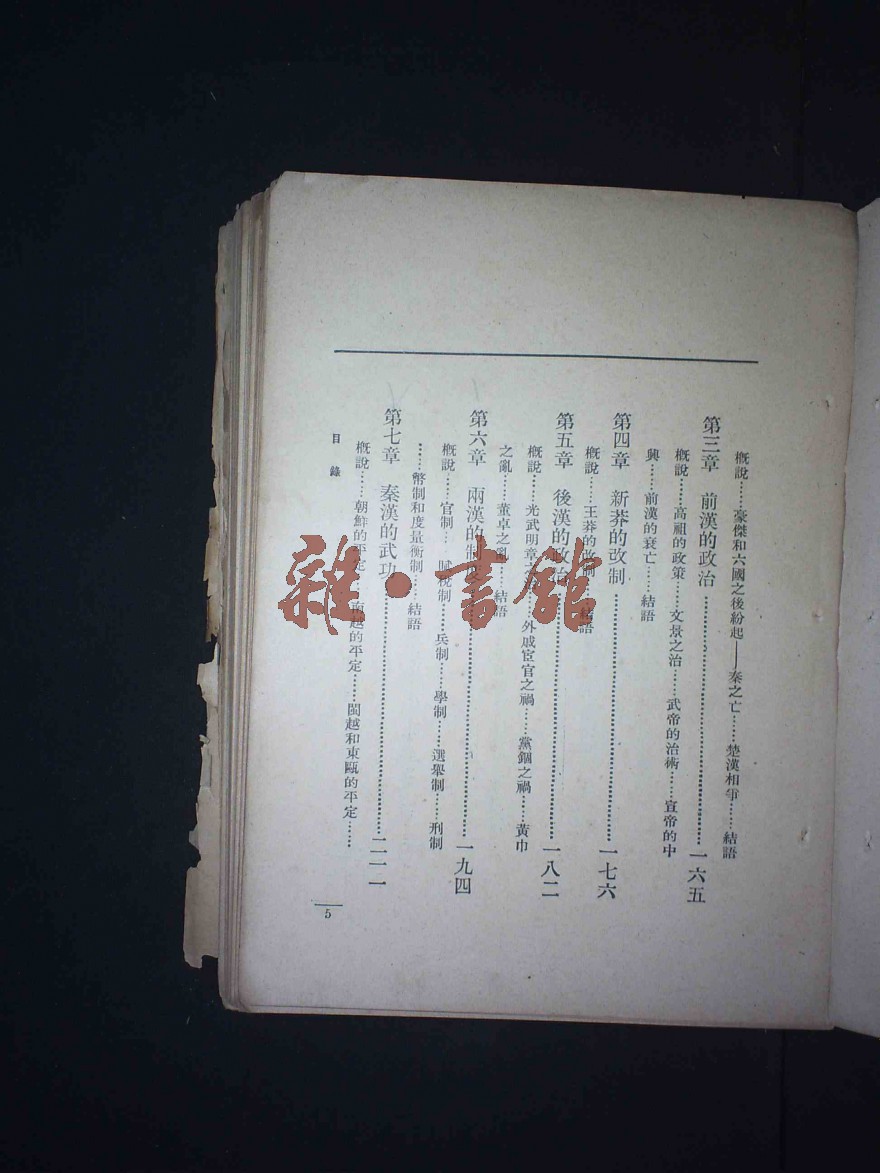 概說……豪傑和六國之後紛起——秦之亡……楚漢相爭……結語
第三章　前漢的政治……一六五
概說……高祖的政策……文景之治……武帝的治術……宣帝的中
興……前漢的衰亡……結語
第四章　新莽的改制……一七六
概說……王莽的改制……結語
第五章　後漢的政治……一八二
概說……光武明章……外戚宦官之禍……黨錮之禍……黃巾
之亂……董卓之亂……結語
第六章　兩漢的制……一九四
概說……官制……賦稅制……兵制……學制……選舉制……刑制
……幣制和度量衡制……結語
第七章　秦漢的武功……二二一
概說……朝鮮的平定……南越的平定……閩越和東甌的平定……
目錄
5
雜·書館